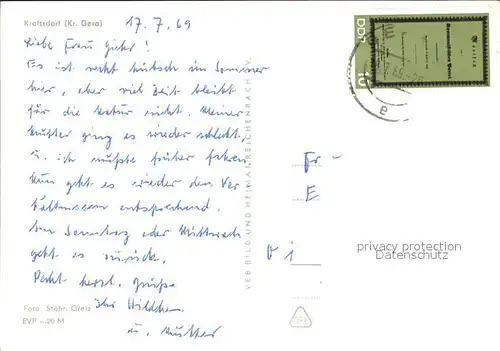 Kraftsdorf (Kr. Gera)
17. 7. 69
Liebe Frau Gicher!
Es ist recht hübsch im Sommer
hier, aber viel Zeit bleibt
für die Natur nicht. Meiner
Mutter ging es wieder schlecht,
u. ich mußte früher fahren.
Nun geht es wieder den Ver
hältnissen entsprechend.
Am Sonntag oder Mittwoch
geht es zurück.
Recht herzl. Grüße
Ihr Wildchen
u. Mutter
Foto: Stöhr, Greiz
EVP –.20 M
VEB BILD UND HEIMAT REICHENBACH I. V.
DDR
10
Fr
E
privacy protection
Datenschutz